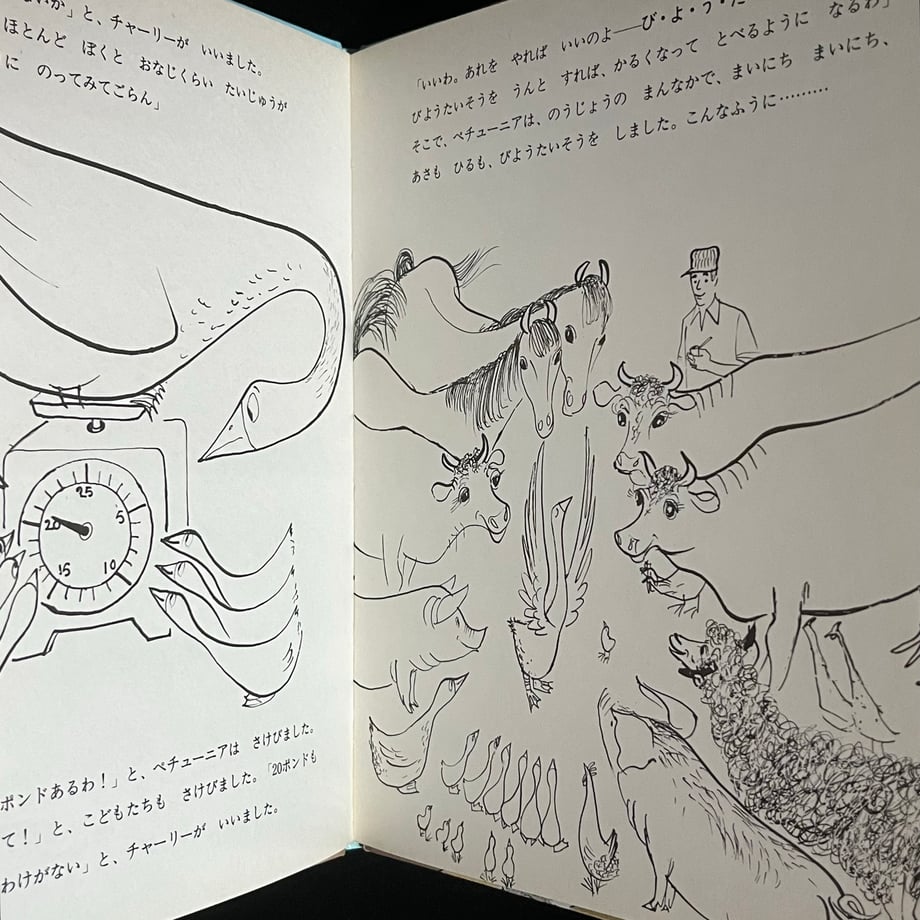 ないか」と、チャーリーが　いいました。
ほとんど　ぼくと　おなじくらい　たいじゅうが
に　のってみてごらん」
25
20
5
15
10
ポンドあるわ！」と、ペチューニアは　さけびました。
て！」と、こどもたちも　さけびました。「20ポンドも
わけがない」と、チャーリーが　いいました。
「いいわ。あれを　やれば　いいのよ──び・よ・う・た
びようたいそうを　うんと　すれば、かるくなって　とべるように　なるわ」
そこで、ペチューニアは、のうじょうの　まんなかで、まいにち　まいにち、
あさも　ひるも、びようたいそうを　しました。こんなふうに………